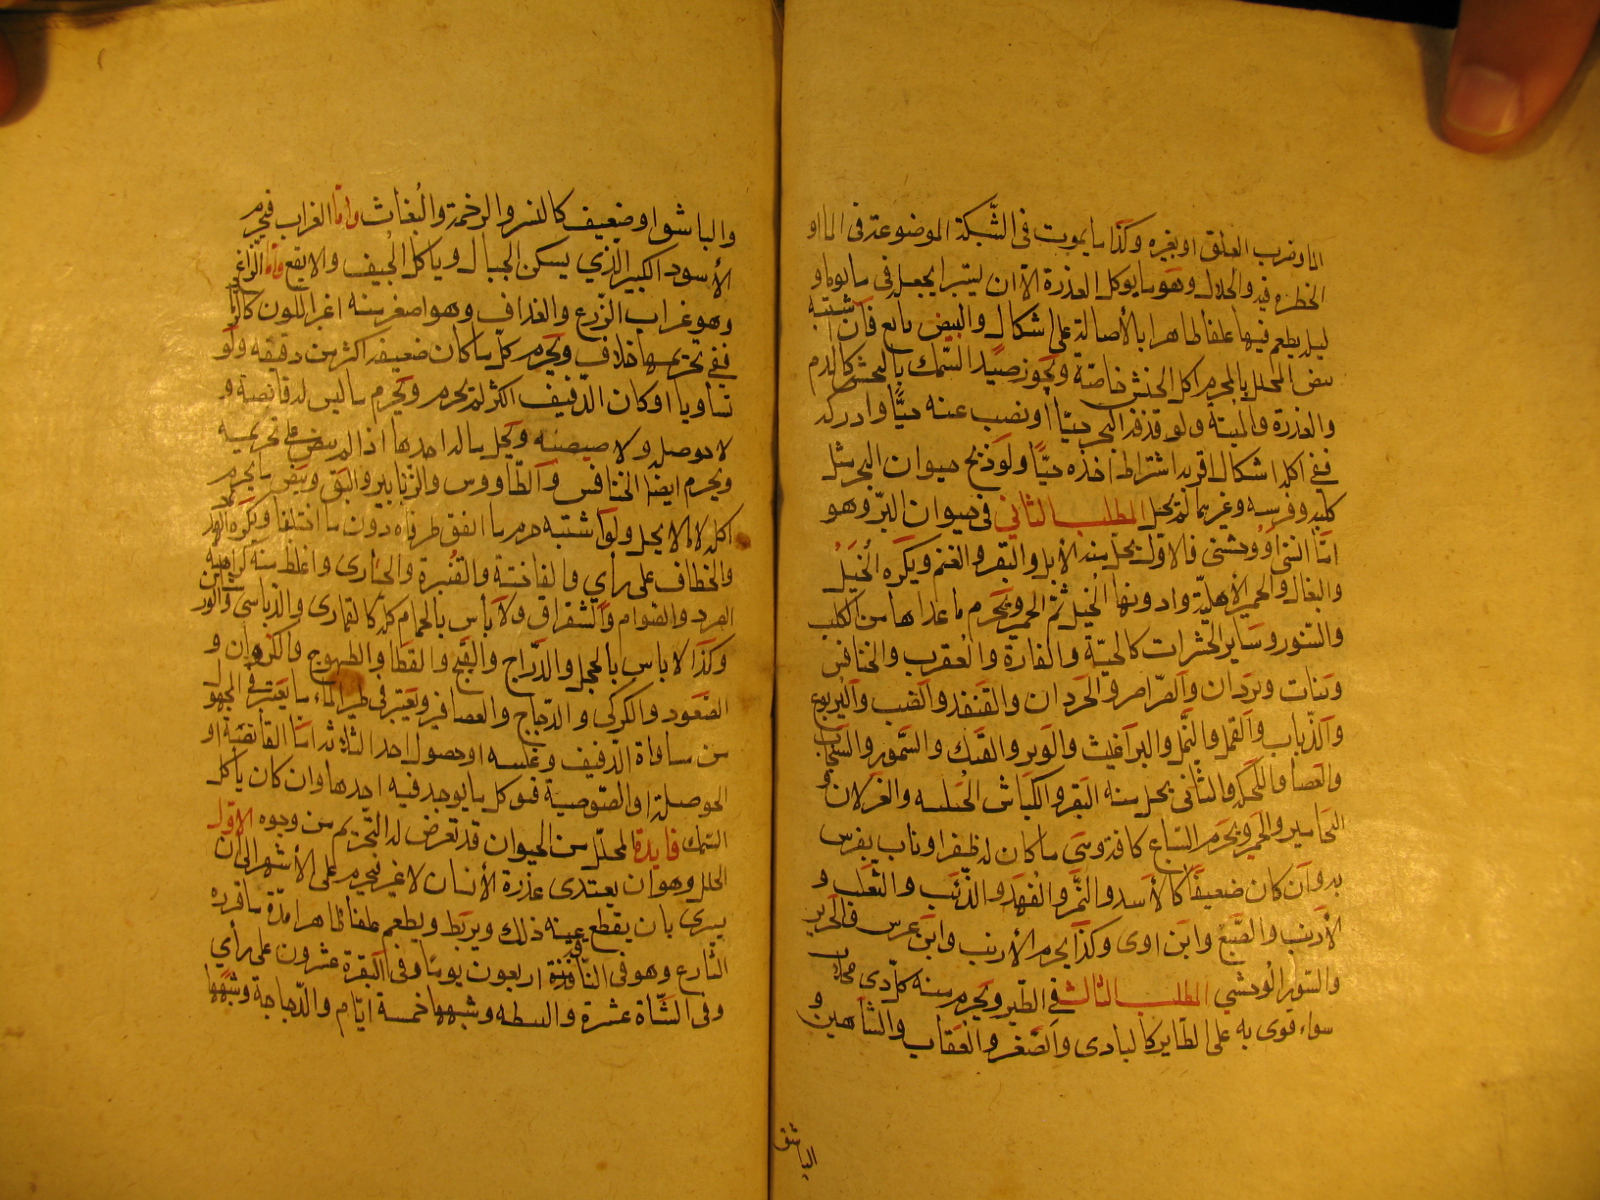 الماء وضرب العلق او بغيره وكذا ما يموت في الشبكة الموضوعة في الماء او
الحظيرة فيه والجلال وهو ما يوكل العذرة الا ان يستبرا بجعله في ماء يوما و
ليلة يطعم فيها علفا طاهرا بالأصالة على اشكال والبيض تابع فان اشتبه
بيض المحلل بالمحرم اكل الخشن خاصة ويجوز صيد السمك بالنجس كالدم
والعذرة والميتة ولو قذف البحر حيا او نضب عنه حيا وادركه
ففي اكله اشكال اقربه اشتراط اخذه حيا ولو ذبح حيوان البحر مثل
كلبه وفرسه وغيرهما لم يحل المطلب الثاني في حيوان البر وهو
اما انسي او وحشي فالاول يحل منه الابل والبقر والغنم ويكره الخيل
والبغال والحمير الاهلية وادونها الخيل ثم الحمير ويحرم ما عداها من الكلب
والسنور وساير الحشرات كالحية والفارة والعقرب والخنافس
وبنات وردان والصراصر والجردان والقنفذ والضب واليربوع
والذباب والقمل والنمل والبراغيث والوبر والفنك والسمور والسنجاب
والعضاء واللحكة والثاني يحل منه البقر والكباش الجبلية والغزلان و
اليحامير والحمر ويحرم السباع كافة وهي ما كان له ظفر او ناب يفرس
به وان كان ضعيفا كالأسد والنمر والفهد والذئب والثعلب و
الأرنب والضبع وابن اوى وكذا يحرم الأرنب وابن عرس
والسنور الوحشي المطلب الثالث في الطير ويحرم منه كل ذي مخلاب
سواء قوى به على الطاير كالبازى والصقر والعقاب والشاهين و
الباشق
والباشق او ضعيف كالنسر والرخمة والبغاث واما الغراب فيحرم
الأسود الكبير الذي يسكن الجبال وياكل الجيف والابقع واما الزاغ
وهو غراب الزرع والغداف وهو اصغر منه اغبر اللون كالرماد
ففي تحريمهما خلاف ويحرم كل ما كان صفيفه اكثر من دفيفه ولو
تساويا او كان الدفيف اكثر لم يحرم ويحرم ما ليس له قانصة و
لا حوصلة ولا صيصية ويحل بما له احدها اذا لم ينص على تحريمه
ويحرم ايضا الخفافيش والطاووس والزنابير والبق وبيض ما يحرم
اكله لا ما لا يحل ولو اشتبه حرم ما اتفق طرفاه دون ما اختلفا ويكره الهدهد
والخطاف على رأي والفاختة والقنبرة والحبارى واغلظ منه كراهية
الصرد والصوام والشقراق ولا بأس بالحمام كله كالقمارى والدباسي والورشان
وكذا لا باس بالحجل والدراج والقبج والقطا والطيهوج والكروان و
الصعوة والكركي والدجاج والعصافير ويعتبر في طير الماء ما يعتبر في المجهول
من مساواة الدفيف وغلبته او حصول احد الثلاثة اما القانصة او
الحوصلة او الصيصية فيؤكل ما يوجد فيه احدها وان كان ياكل
السمك فايدة المحلل من الحيوان قد تعرض له التحريم من وجوه الاول
الجلل وهو ان يغتدى عذرة الأنسان لا غير فيحرم على الأشهر الى ان
يستبرى بان يقطع عنه ذلك ويربط ويطعم علفا طاهرا مدة ما قرره
الشارع وهو في الناقة اربعون يوما وفي البقرة عشرون على رأي
وفي الشاة عشرة والبطة وشبهها خمسة ايام والدجاجة وشبهها